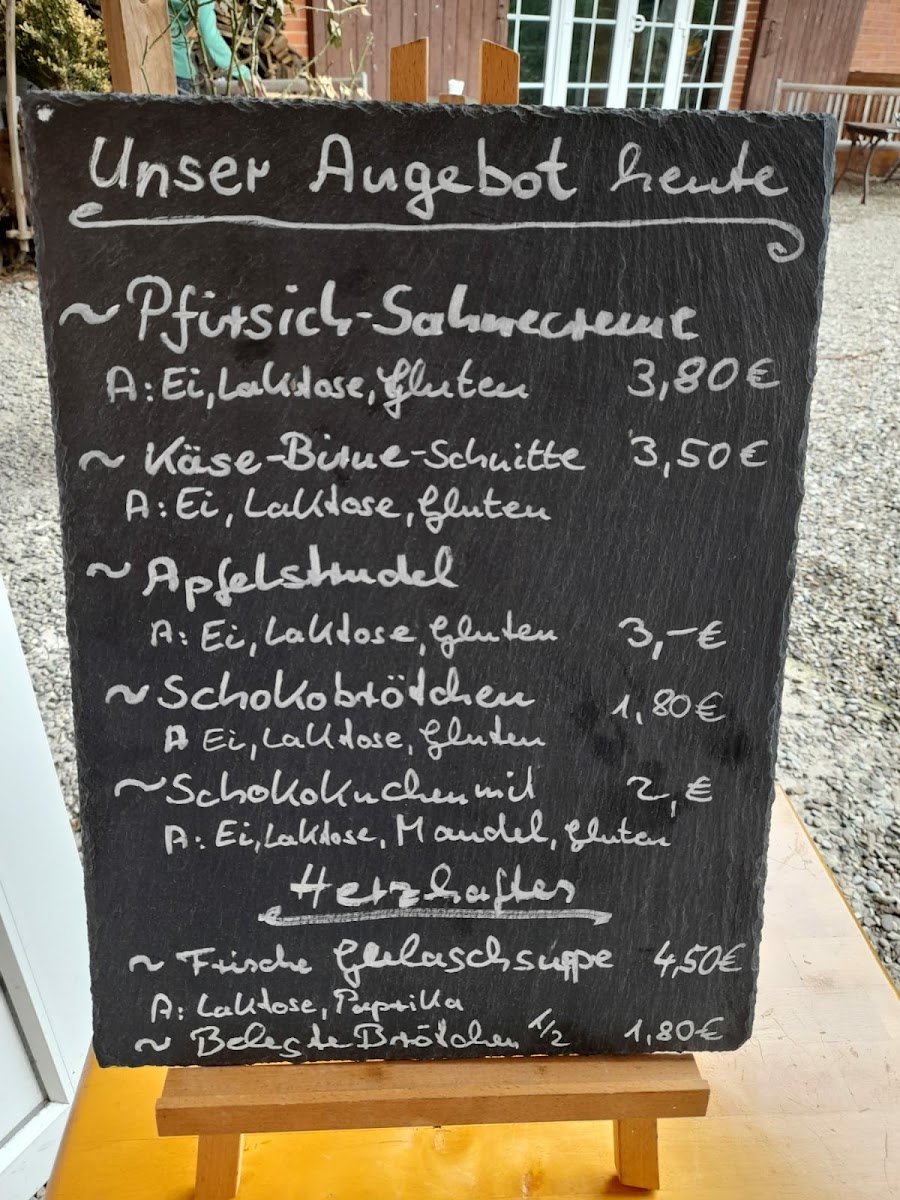 Unser Angebot heute
~ Pfirsich-Sahnecreme
A: Ei, Laktose, Gluten 3,80€
~ Käse-Birne-Schnitte 3,50€
A: Ei, Laktose, Gluten
~ Apfelstrudel
A: Ei, Laktose, Gluten 3,-€
~ Schokobrötchen 1,80€
A Ei, Laktose, Gluten
~ Schokokuchen mit 2,€
A: Ei, Laktose, Mandel, Gluten
Herzhaftes
~ Frische Gulaschsuppe 4,50€
A: Laktose, Paprika
~ Belegte Brötchen 1/2 1,80€